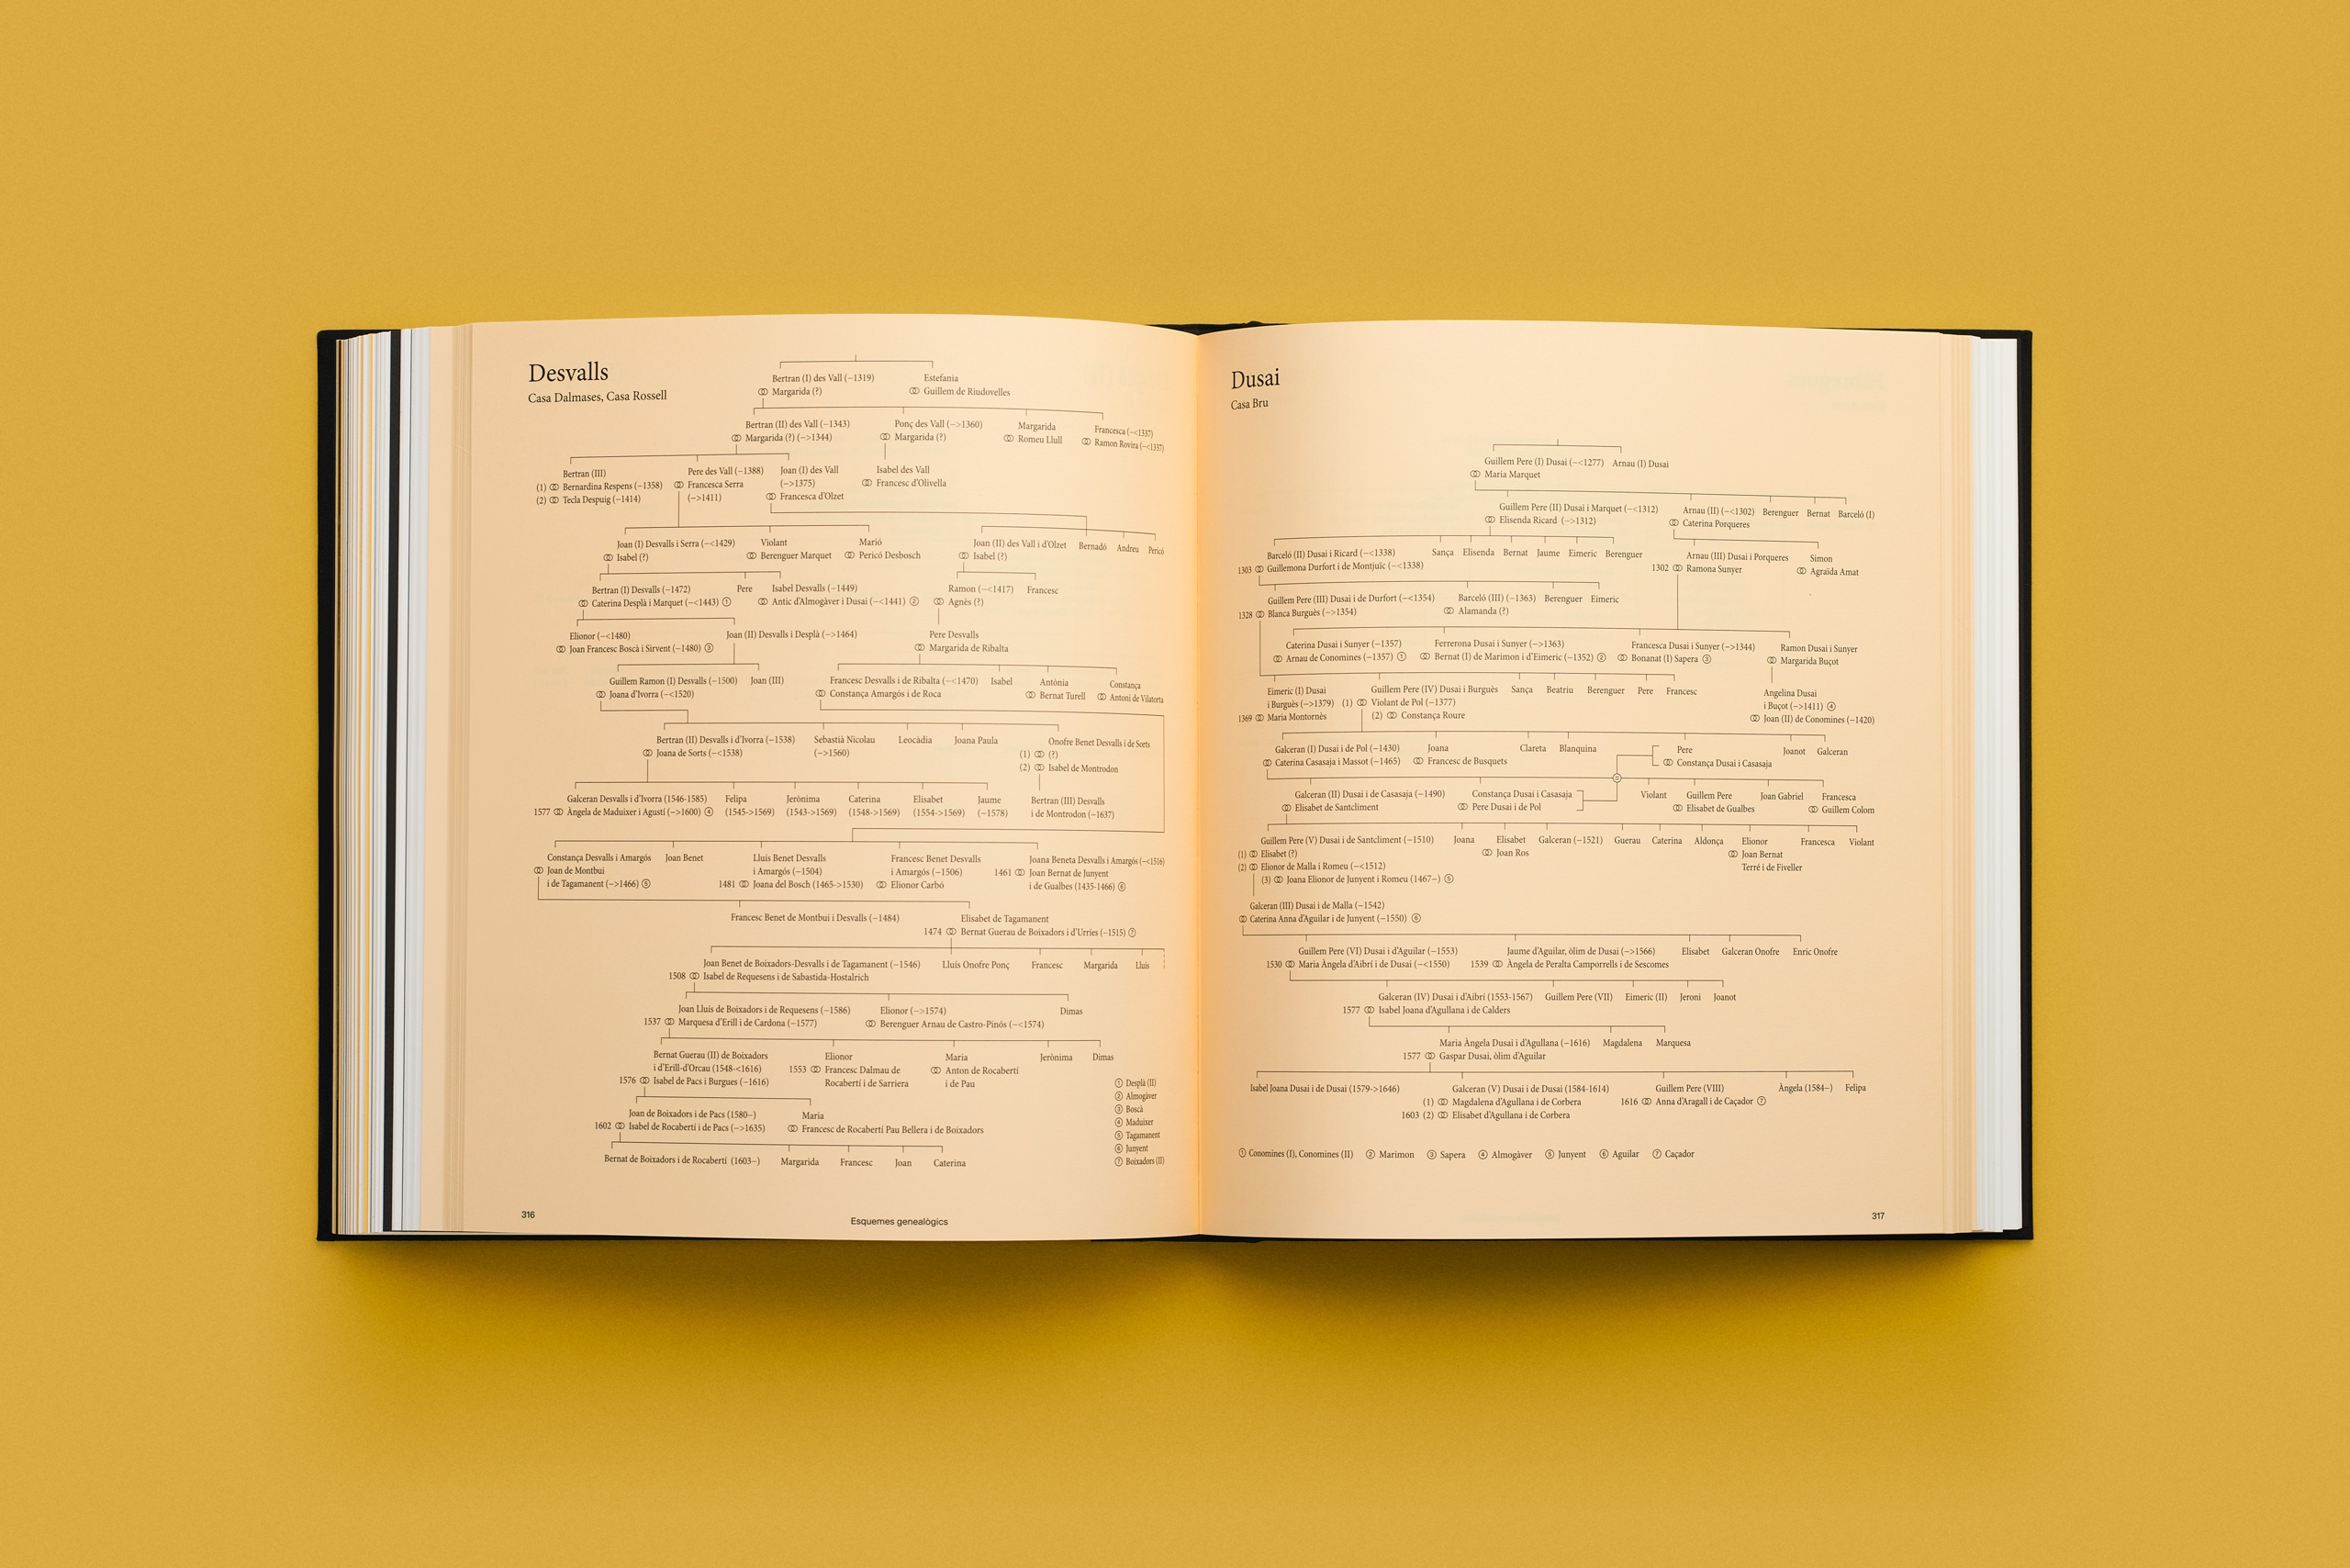 Desvalls
Casa Dalmases, Casa Rossell
Bertran (I) des Vall (−1319) Estefania
Margarida (?) Guillem de Riudovelles
Bertran (II) des Vall (−1343) Ponç des Vall (−>1360) Margarida Francesca (−<1337)
Margarida (?) (−>1344) Margarida (?) Romeu Llull Ramon Rovira (−<1337)
Bertran (III) Pere des Vall (−1388) Joan (I) des Vall Isabel des Vall
(1) Bernardina Respens (−1358) Francesca Serra (−>1375) Francesc d'Olivella
(2) Tecla Despuig (−1414) (−>1411) Francesca d'Olzet
Joan (I) Desvalls i Serra (−<1429) Violant Marió Joan (II) des Vall i d'Olzet Bernadó Andreu Pericó
Isabel (?) Berenguer Marquet Pericó Desbosch Isabel (?)
Bertran (I) Desvalls (−1472) Pere Isabel Desvalls (−1449) Ramon (−<1417) Francesc
Caterina Desplà i Marquet (−<1443) ① Antic d'Almogàver i Dusai (−<1441) ② Agnès (?)
Elionor (−<1480) Joan (II) Desvalls i Desplà (−>1464) Pere Desvalls
Joan Francesc Boscà i Sirvent (−1480) ③ Margarida de Ribalta
Guillem Ramon (I) Desvalls (−1500) Joan (III) Francesc Desvalls i de Ribalta (−<1470) Isabel Antònia Constança
Joana d'Ivorra (−<1520) Constança Amargós i de Roca Bernat Turell Antoni de Vilatorta
Bertran (II) Desvalls i d'Ivorra (−1538) Sebastià Nicolau Leocàdia Joana Paula Onofre Benet Desvalls i de Sorts
Joana de Sorts (−<1538) (−>1560) (1) (?)
(2) Isabel de Montrodon
Galceran Desvalls i d'Ivorra (1546-1585) Felipa Jerònima Caterina Elisabet Jaume Bertran (III) Desvalls
1577 Àngela de Maduixer i Agustí (−>1600) ④ (1545->1569) (1543->1569) (1548->1569) (1554->1569) (−1578) i de Montrodon (−1637)
Constança Desvalls i Amargós Joan Benet Lluís Benet Desvalls Francesc Benet Desvalls Joana Beneta Desvalls i Amargós (−<1516)
Joan de Montbui i Amargós (−1504) i Amargós (−1506) 1461 Joan Bernat de Junyent
i de Tagamanent (−>1466) ⑤ 1481 Joana del Bosch (1465->1530) Elionor Carbó i de Gualbes (1435-1466) ⑥
Francesc Benet de Montbui i Desvalls (−1484) Elisabet de Tagamanent
1474 Bernat Guerau de Boixadors i d'Urries (−1515) ⑦
Joan Benet de Boixadors-Desvalls i de Tagamanent (−1546) Lluís Onofre Ponç Francesc Margarida Lluís
1508 Isabel de Requesens i de Sabastida-Hostalrich
Joan Lluís de Boixadors i de Requesens (−1586) Elionor (−>1574) Dimas
1537 Marquesa d'Erill i de Cardona (−1577) Berenguer Arnau de Castro-Pinós (−<1574)
Bernat Guerau (II) de Boixadors Elionor Maria Jerònima Dimas
i d'Erill-d'Orcau (1548-<1616) 1553 Francesc Dalmau de Anton de Rocabertí
1576 Isabel de Pacs i Burgues (−1616) Rocabertí i de Sarriera i de Pau
Joan de Boixadors i de Pacs (1580−) Maria
1602 Isabel de Rocabertí i de Pacs (−>1635) Francesc de Rocabertí Pau Bellera i de Boixadors
Bernat de Boixadors i de Rocabertí (1603−) Margarida Francesc Joan Caterina
① Desplà (II)
② Almogàver
③ Boscà
④ Maduixer
⑤ Tagamanent
⑥ Junyent
⑦ Boixadors (II)
316
Esquemes genealògics
Dusai
Casa Bru
Guillem Pere (I) Dusai (−<1277) Arnau (I) Dusai
Maria Marquet
Guillem Pere (II) Dusai i Marquet (−<1312) Arnau (II) (−<1302) Berenguer Bernat Barceló (I)
Elisenda Ricard (−>1312) Caterina Porqueres
Barceló (II) Dusai i Ricard (−<1338) Sança Elisenda Bernat Jaume Eimeric Berenguer Arnau (III) Dusai i Porqueres Simon
1303 Guillemona Durfort i de Montjuïc (−<1338) 1302 Ramona Sunyer Agraïda Amat
Guillem Pere (III) Dusai i de Durfort (−<1354) Barceló (III) (−1363) Berenguer Eimeric
1328 Blanca Burguès (−>1354) Alamanda (?)
Caterina Dusai i Sunyer (−1357) Ferrerona Dusai i Sunyer (−>1363) Francesca Dusai i Sunyer (−>1344) Ramon Dusai i Sunyer
Arnau de Conomines (−1357) ① Bernat (I) de Marimon i d'Eimeric (−1352) ② Bonanat (I) Sapera ③ Margarida Buçot
Eimeric (I) Dusai Guillem Pere (IV) Dusai i Burguès Sança Beatriu Berenguer Pere Francesc Angelina Dusai
i Burguès (−>1379) (1) Violant de Pol (−1377) i Buçot (−>1411) ④
1369 Maria Montornès (2) Constança Roure Joan (II) de Conomines (−1420)
Galceran (I) Dusai i de Pol (−1430) Joana Clareta Blanquina Pere Joanot Galceran
Caterina Casasaja i Massot (−1465) Francesc de Busquets Constança Dusai i Casasaja
Galceran (II) Dusai i de Casasaja (−1490) Constança Dusai i Casasaja Violant Guillem Pere Joan Gabriel Francesca
Elisabet de Santcliment Pere Dusai i de Pol Elisabet de Gualbes Guillem Colom
Guillem Pere (V) Dusai i de Santcliment (−1510) Joana Elisabet Galceran (−1521) Guerau Caterina Aldonça Elionor Francesca Violant
(1) Elisabet (?) Joan Ros Joan Bernat
(2) Elionor de Malla i Romeu (−<1512) Terré i de Fiveller
(3) Joana Elionor de Junyent i Romeu (1467−) ⑤
Galceran (III) Dusai i de Malla (−1542)
Caterina Anna d'Aguilar i de Junyent (−1550) ⑥
Guillem Pere (VI) Dusai i d'Aguilar (−1553) Jaume d'Aguilar, òlim de Dusai (−>1566) Elisabet Galceran Onofre Enric Onofre
1530 Maria Àngela d'Aibrí i de Dusai (−<1550) 1539 Àngela de Peralta Camporrells i de Sescomes
Galceran (IV) Dusai i d'Aibrí (1553-1567) Guillem Pere (VII) Eimeric (II) Jeroni Joanot
1577 Isabel Joana d'Agullana i de Calders
Maria Àngela Dusai i d'Agullana (−1616) Magdalena Marquesa
1577 Gaspar Dusai, òlim d'Aguilar
Isabel Joana Dusai i de Dusai (1579->1646) Galceran (V) Dusai i de Dusai (1584-1614) Guillem Pere (VIII) Àngela (1584−) Felipa
(1) Magdalena d'Agullana i de Corbera 1616 Anna d'Aragall i de Caçador ⑦
1603 (2) Elisabet d'Agullana i de Corbera
① Conomines (I), Conomines (II) ② Marimon ③ Sapera ④ Almogàver ⑤ Junyent ⑥ Aguilar ⑦ Caçador
317